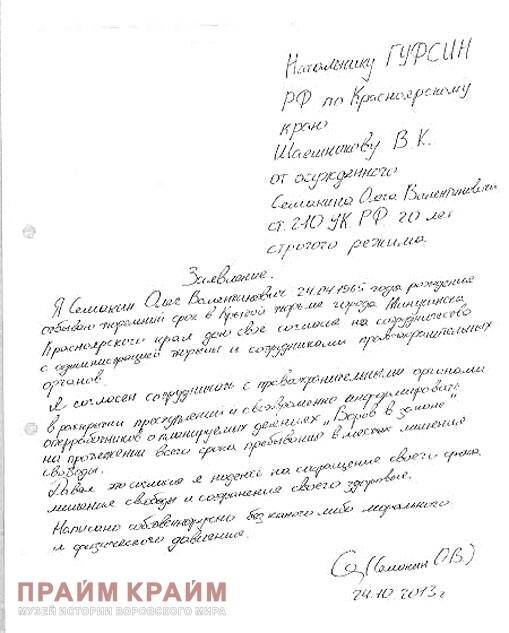 Начальнику ГУФСИН
РФ по Красноярскому
краю
Шаешникову В.К.
от осужденного
Семакина Олега Валентиновича
ст. 210 УК РФ 20 лет
строгого режима.
Заявление.
Я Семакин Олег Валентинович 24.04.1965 года рождение
отбываю тюремный срок в Крытой тюрьме города Минусинска
Красноярского края даю свое согласие на сотрудничество
с администрацией тюрьмы и сотрудниками правоохранительных
органов.
Я согласен сотрудничать с правоохранительными органами
в раскрытии преступлений и своевременно информировать
оперработников о планируемых деяниях „Воров в законе"
на протяжении всего срока пребывания в местах лишения
свободы.
Давая это согласие я надеюсь на сокращение своего срока
лишения свободы и сохранение своего здоровья.
Написано собственноручно без какого либо морального
и физического давления.
(Семакин О.В.)
24.10.2013 г
ПРАЙМ КРАЙМ
МУЗЕЙ ИСТОРИИ ВОРОВСКОГО МИРА